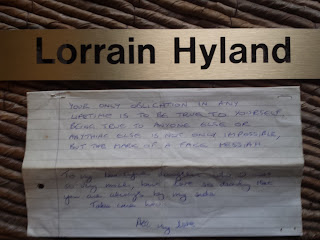 Lorrain Hyland
YOUR ONLY OBLIGATION IN ANY
LIFETIME IS TO BE TRUE TO YOURSELF.
BEING TRUE TO ANYONE ELSE OR
ANYTHING ELSE IS NOT ONLY IMPOSSIBLE,
BUT THE MARK OF A FALSE MESSIAH
To my
you are always by my side
Take care
All my love